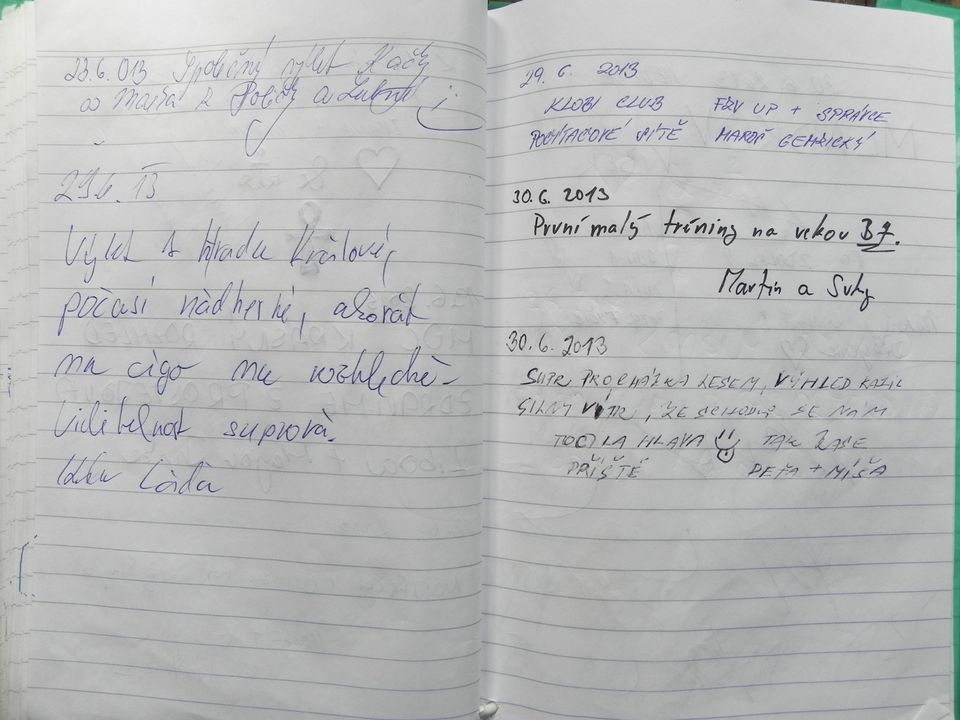 23.6.013 Společný výlet Kačky
a
29.6.13
Výlet z hradu
počasí nádherné, akorát
na cigo na rozhledně-
Viditelnost suprová.
Láďa
29. 6. 2013
KLOBI CLUB FZV UP + SPRÁVCE
POČÍTAČOVÉ SÍTĚ MAROŠ
30.6.2013
První malý tréning na vekou B7.
Martin a
30.6.2013
SUPR PROCHÁZKA LESEM, VÝHLED KAZIL
SILNÝ VÍTR, ZE SCHODŮ SE NÁM
TOČILA HLAVA TAK ZASE
PŘÍŠTĚ PEŤA + MÍŠA